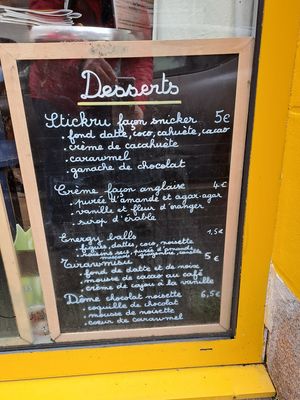 Desserts
Stickru façon snicker 5€
. fond datte, coco, cahuète, cacao
. crème de cacahuète
. caramel
. ganache de chocolat
Crème façon anglaise 4€
. purée d'amande et agar-agar
. vanille et fleur d'oranger
. sirop d'érable
Energy balls 1,5€
. figues, dattes, coco, noisette
. raisins secs, purée d'amande
gingembre, cannelle
Tiramisu 5€
. fond de datte et de noix
. mousse de cacao au café
. crème de cajou à la vanille
Dôme chocolat noisette 6,5€
. coquille de chocolat
. mousse de noisette
. cœur de caramel